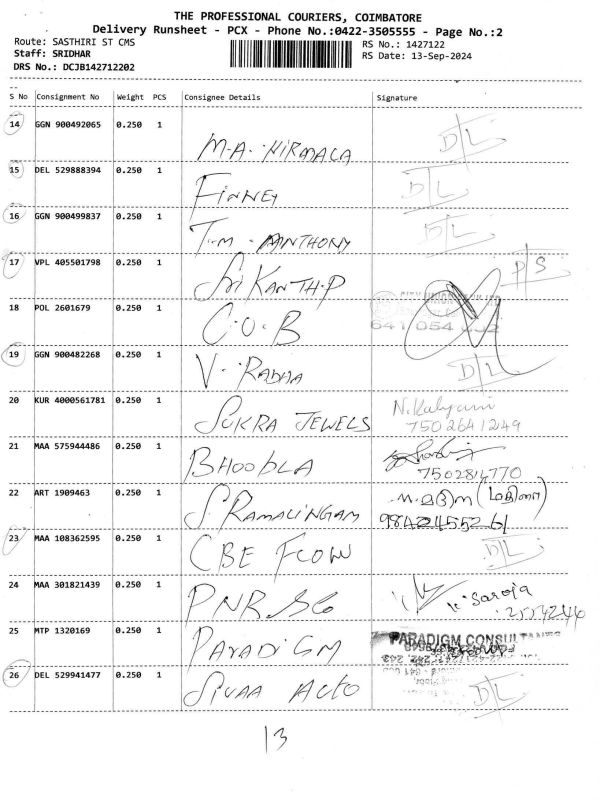 THE PROFESSIONAL COURIERS, COIMBATORE
Delivery Runsheet - PCX - Phone No.:0422-3505555 - Page No.:2
Route: SASTHIRI ST CMS
RS No.: 1427122
Staff: SRIDHAR
RS Date: 13-Sep-2024
DRS No.: DCJB142712202
S No Consignment No Weight PCS Consignee Details Signature
14 GGN 900492065 0.250 1 M.A. NIRMALA D/L
15 DEL 529888394 0.250 1 FINNEY D/L
16 GGN 900499837 0.250 1 T.M. ANTHONY D/L
17 VPL 405501798 0.250 1 SRI KANTH.P D/S
18 POL 2601679 0.250 1 C.O.B CITY UNION
641 054
19 GGN 900482268 0.250 1 V. RADHA D/L
20 KUR 4000561781 0.250 1 SUKRA JEWELS N.Kalyani
7502641249
21 MAA 575944486 0.250 1 BHOOPLA
7502814770
22 ART 1909463 0.250 1 S. RAMALINGAM
9842455261
23 MAA 108362595 0.250 1 CBE FLOW D/L
24 MAA 301821439 0.250 1 PNR K. Saroja
25 MTP 1320169 0.250 1 PARADIGM PARADIGM CONSULTANTS
26 DEL 529941477 0.250 1 SIVAA AUTO D/L
13